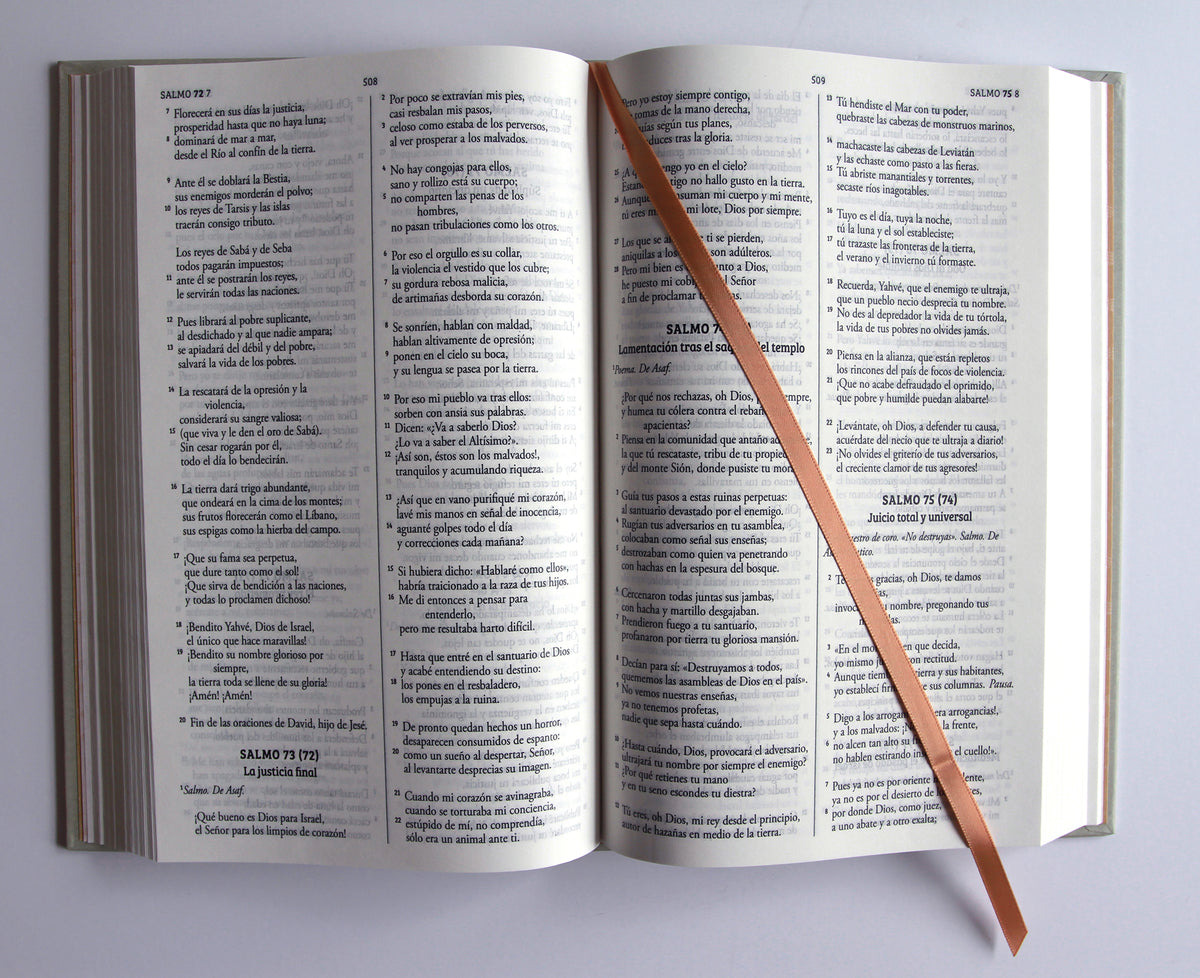 508
SALMO 72 7
7 Florecerá en sus días la justicia,
prosperidad hasta que no haya luna;
8 dominará de mar a mar,
desde el Río al confín de la tierra.
9 Ante él se doblará la Bestia,
sus enemigos morderán el polvo;
10 los reyes de Tarsis y las islas
traerán consigo tributo.
Los reyes de Sabá y de Seba
todos pagarán impuestos;
11 ante él se postrarán los reyes,
le servirán todas las naciones.
12 Pues librará al pobre suplicante,
al desdichado y al que nadie ampara;
13 se apiadará del débil y del pobre,
salvará la vida de los pobres.
14 La rescatará de la opresión y la
violencia,
considerará su sangre valiosa;
15 (que viva y le den el oro de Sabá).
Sin cesar rogarán por él,
todo el día lo bendecirán.
16 La tierra dará trigo abundante,
que ondeará en la cima de los montes;
sus frutos florecerán como el Líbano,
sus espigas como la hierba del campo.
17 ¡Que su fama sea perpetua,
que dure tanto como el sol!
¡Que sirva de bendición a las naciones,
y todas lo proclamen dichoso!
18 ¡Bendito Yahvé, Dios de Israel,
el único que hace maravillas!
19 ¡Bendito su nombre glorioso por
siempre,
la tierra toda se llene de su gloria!
¡Amén! ¡Amén!
20 Fin de las oraciones de David, hijo de Jesé.
SALMO 73 (72)
La justicia final
1 Salmo. De Asaf.
¡Qué bueno es Dios para Israel,
el Señor para los limpios de corazón!
2 Por poco se extravían mis pies,
casi resbalan mis pasos,
3 celoso como estaba de los perversos,
al ver prosperar a los malvados.
4 No hay congojas para ellos,
sano y rollizo está su cuerpo;
5 no comparten las penas de los
hombres,
no pasan tribulaciones como los otros.
6 Por eso el orgullo es su collar,
la violencia el vestido que los cubre;
7 su gordura rebosa malicia,
de artimañas desborda su corazón.
8 Se sonríen, hablan con maldad,
hablan altivamente de opresión;
9 ponen en el cielo su boca,
y su lengua se pasea por la tierra.
10 Por eso mi pueblo va tras ellos:
sorben con ansia sus palabras.
11 Dicen: «¿Va a saberlo Dios?
¿Lo va a saber el Altísimo?».
12 ¡Así son, éstos son los malvados!,
tranquilos y acumulando riqueza.
13 ¡Así que en vano purifiqué mi corazón,
lavé mis manos en señal de inocencia,
14 aguanté golpes todo el día
y correcciones cada mañana?
15 Si hubiera dicho: «Hablaré como ellos»,
habría traicionado a la raza de tus hijos.
16 Me di entonces a pensar para
entenderlo,
pero me resultaba harto difícil.
17 Hasta que entré en el santuario de Dios
y acabé entendiendo su destino:
18 los pones en el resbaladero,
los empujas a la ruina.
19 De pronto quedan hechos un horror,
desaparecen consumidos de espanto:
20 como un sueño al despertar, Señor,
al levantarte desprecias su imagen.
21 Cuando mi corazón se avinagraba,
cuando se torturaba mi conciencia,
22 estúpido de mí, no comprendía,
sólo era un animal ante ti.
509
SALMO 75 8
Pero yo estoy siempre contigo,
tomas de la mano derecha,
según tus planes,
tras la gloria.
25 yo en el cielo?
no hallo gusto en la tierra.
26 Aunque mi cuerpo y mi mente,
tú eres mi lote, Dios por siempre.
27 Los que se ti se pierden,
aniquilas a los son adúlteros.
28 Pero mi bien es a Dios,
he puesto mi Señor
a fin de proclamar
SALMO
Lamentación tras el del templo
1 Poema. De Asaf.
¿Por qué nos rechazas, oh Dios,
y humea tu cólera contra el
apacientas?
2 Piensa en la comunidad que antaño
la que tú rescataste, tribu de tu
y del monte Sión, donde pusiste tu
3 Guía tus pasos a estas ruinas perpetuas:
al santuario devastado por el enemigo.
4 Rugían tus adversarios en tu asamblea,
colocaban como señal sus enseñas;
5 destrozaban como quien va penetrando
con hachas en la espesura del bosque.
6 Cercenaron todas juntas sus jambas,
con hacha y martillo desgajaban.
7 Prendieron fuego a tu santuario,
profanaron por tierra tu gloriosa mansión.
8 Decían para sí: «Destruyamos a todos,
quememos las asambleas de Dios en el país».
9 No vemos nuestras enseñas,
ya no tenemos profetas,
nadie que sepa hasta cuándo.
10 ¿Hasta cuándo, Dios, provocará el adversario,
ultrajará tu nombre por siempre el enemigo?
11 ¿Por qué retienes tu mano
y en tu seno escondes tu diestra?
12 Tú eres, oh Dios, mi rey desde el principio,
autor de hazañas en medio de la tierra.
13 Tú hendiste el Mar con tu poder,
quebraste las cabezas de monstruos marinos,
14 machacaste las cabezas de Leviatán
y las echaste como pasto a las fieras.
15 Tú abriste manantiales y torrentes,
secaste ríos inagotables.
16 Tuyo es el día, tuya la noche,
tú la luna y el sol estableciste;
17 tú trazaste las fronteras de la tierra,
el verano y el invierno tú formaste.
18 Recuerda, Yahvé, que el enemigo te ultraja,
que un pueblo necio desprecia tu nombre.
19 No des al depredador la vida de tu tórtola,
la vida de tus pobres no olvides jamás.
20 Piensa en la alianza, que están repletos
los rincones del país de focos de violencia.
21 ¡Que no acabe defraudado el oprimido,
que pobre y humilde puedan alabarte!
22 ¡Levántate, oh Dios, a defender tu causa,
acuérdate del necio que te ultraja a diario!
23 ¡No olvides el griterío de tus adversarios,
el creciente clamor de tus agresores!
SALMO 75 (74)
Juicio total y universal
de coro. «No destruyas». Salmo. De
2 gracias, oh Dios, te damos
nombre, pregonando tus
3 «En el que decida,
yo mismo con rectitud.
4 Aunque y sus habitantes,
yo establecí sus columnas. Pausa.
5 Digo a los arrogancias!,
y a los malvados: la frente,
6 no alcen tan alto su
no hablen estirando el cuello!».
7 Pues ya no es por oriente
ya no es por el desierto
8 por donde Dios, como juez,
a uno abate y a otro exalta;